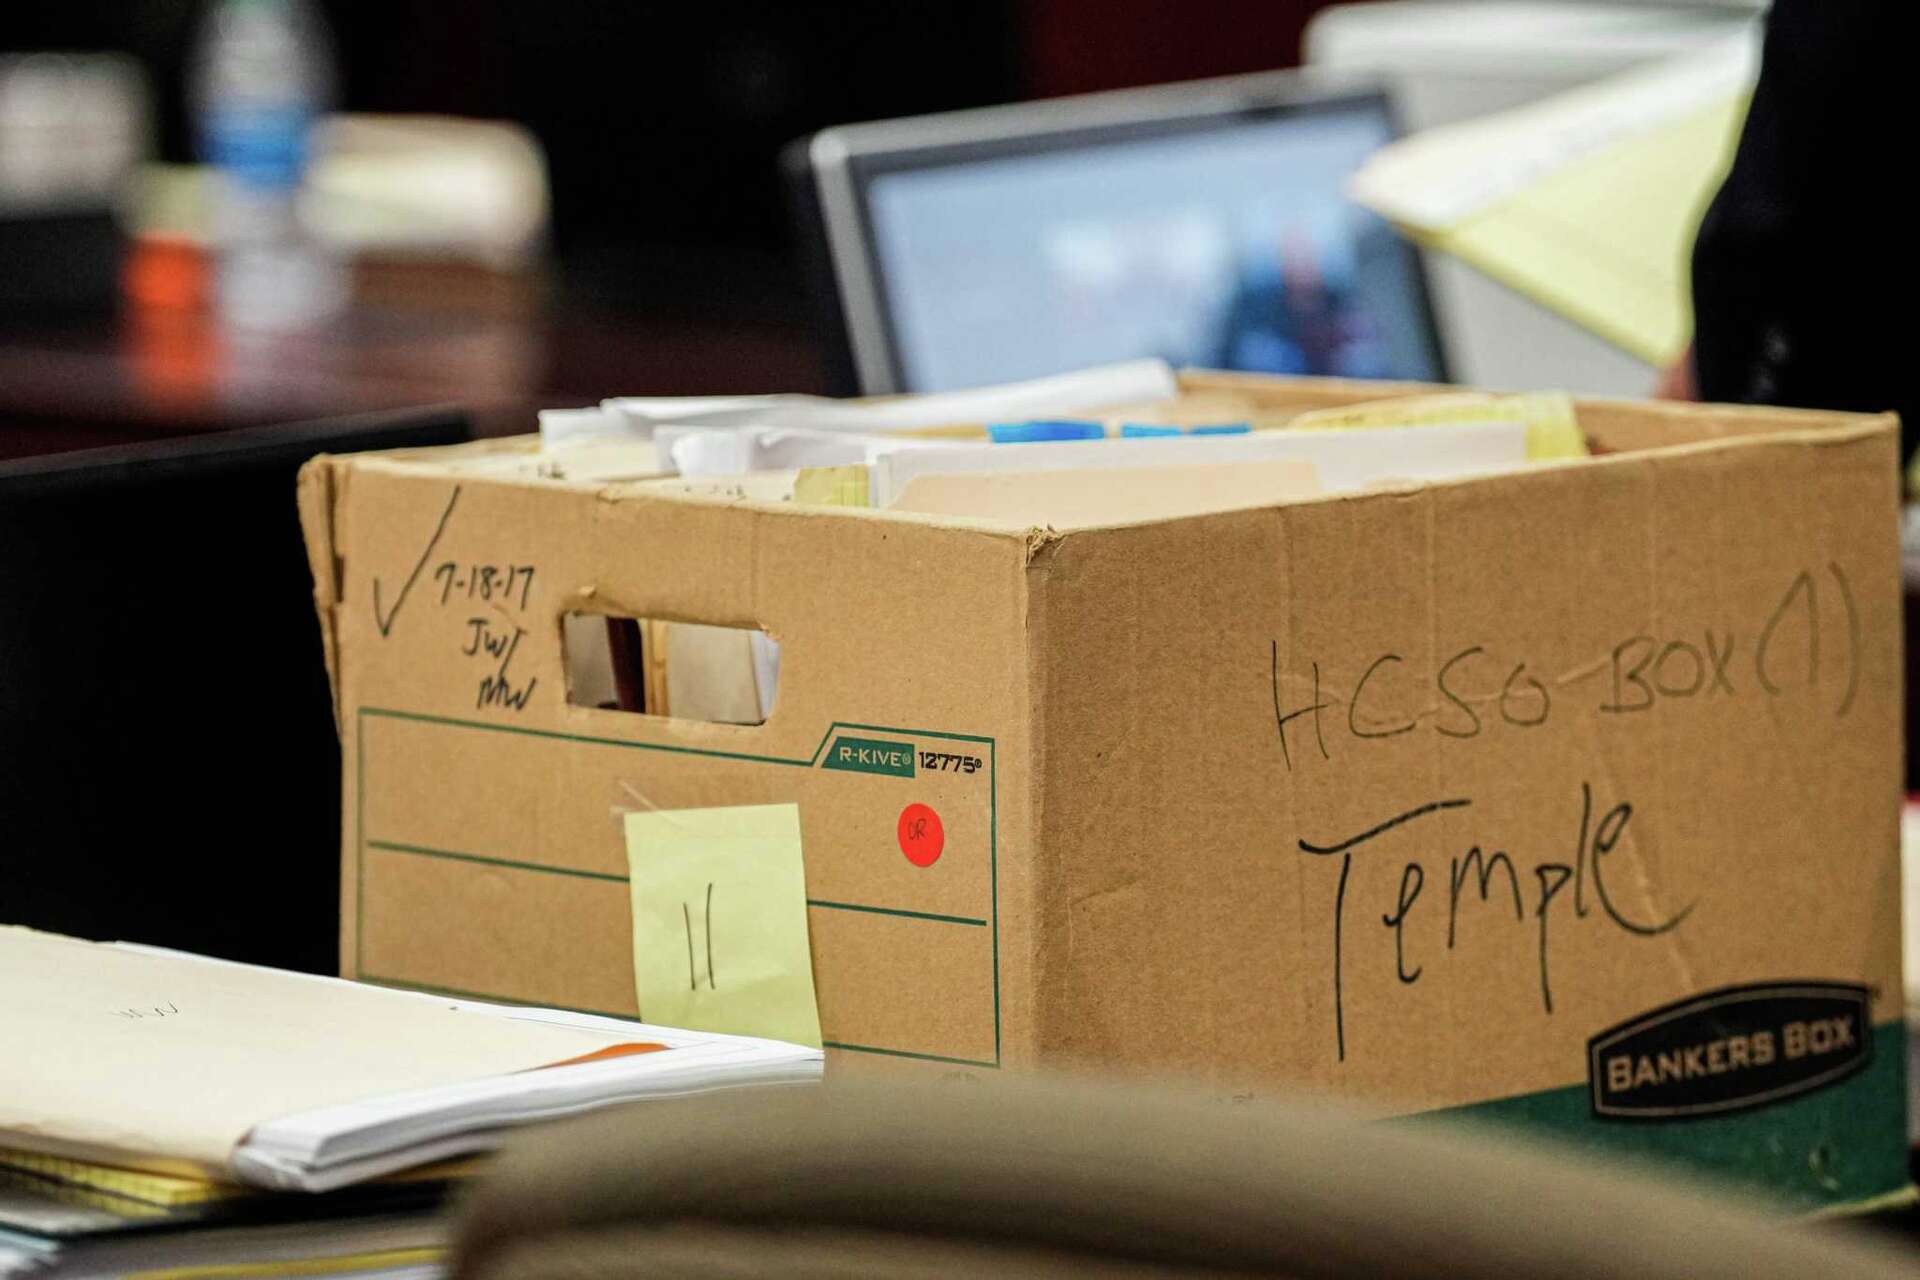 7-18-17
JW/
MW
R-KIVE® 12775®
OR
11
HCSO BOX (1)
Temple
BANKERS BOX
MW